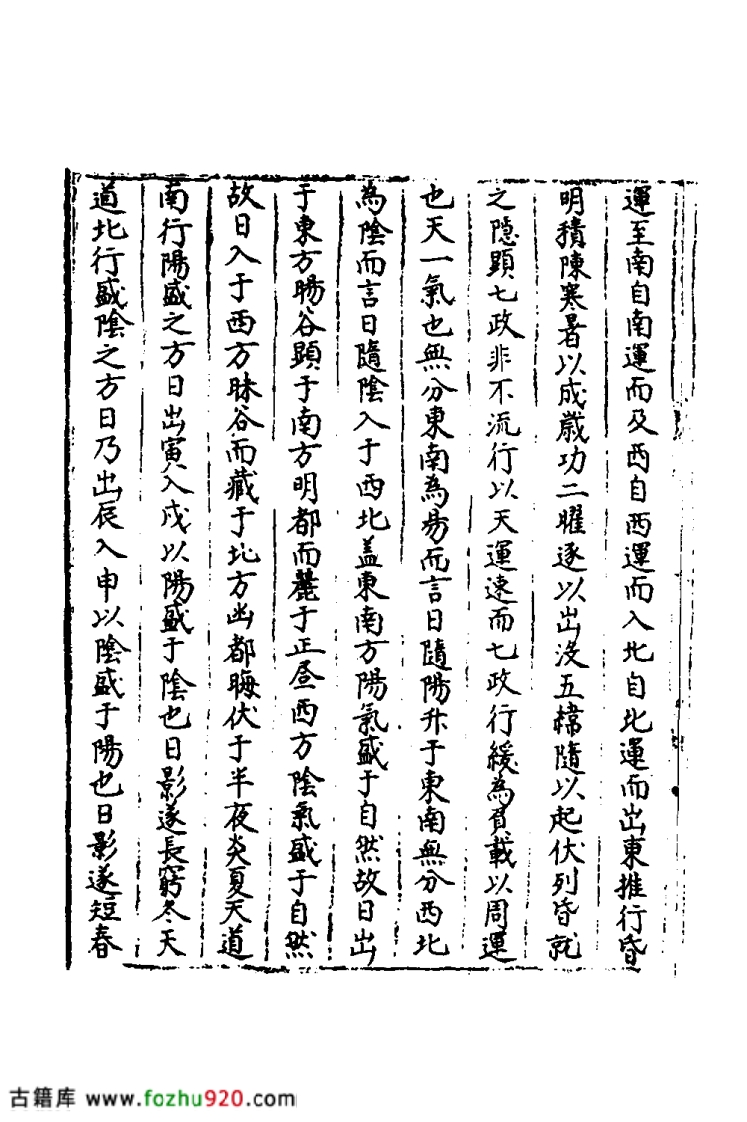 運至南自南運而及西自西運而入北自北運而出東推行昏
明積陳寒暑以成歲功二曜逐以出沒五緯隨以起伏列昏就
之隱顯七政非不流行以天運速而七政行緩為負載以周運
也天一氣也無分東南為昜而言日隨陽升于東南無分西北
為陰而言日隨陰入于西北盖東南方陽氣盛于自然故日出
于東方暘谷顕于南方明都而麓于正昼西方陰氣盛于自然
故日入于西方昧谷而藏于北方幽都晦伏于半夜炎夏天道
南行陽盛之方日出寅入戌以陽盛于陰也日影遂長窮冬天
道北行盛陰之方日乃出辰入申以陰盛于陽也日影遂短春
古籍库 www.fozhu920.com